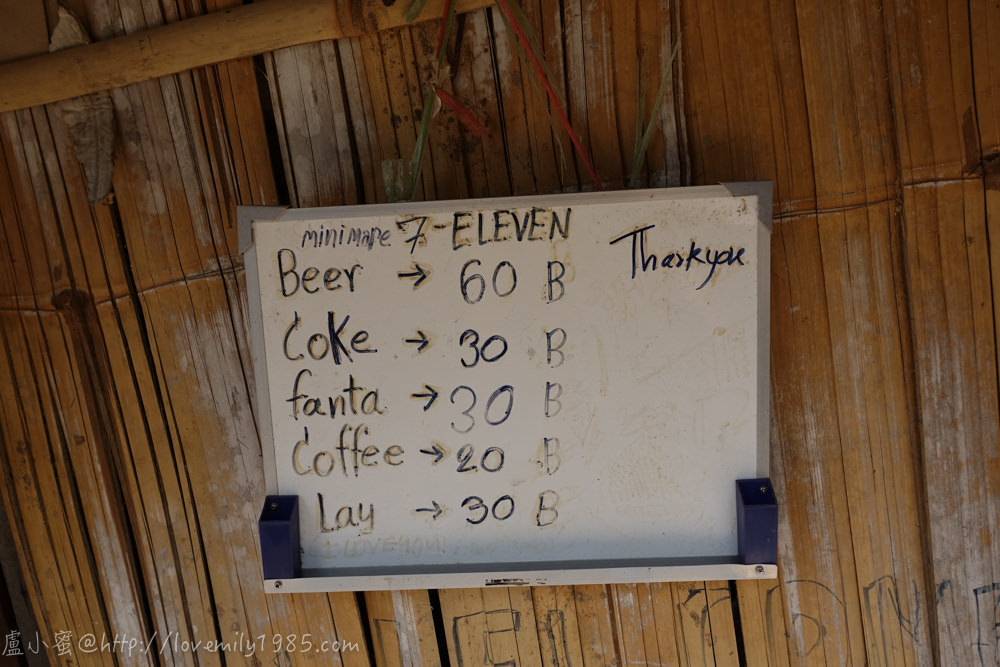 minimare 7-ELEVEN
Thankyou
Beer → 60 B
Coke → 30 B
fanta → 30 B
Coffee → 20 B
Lay → 30 B
I LOVE YOU
盧小蜜@http://lovemily1985.com